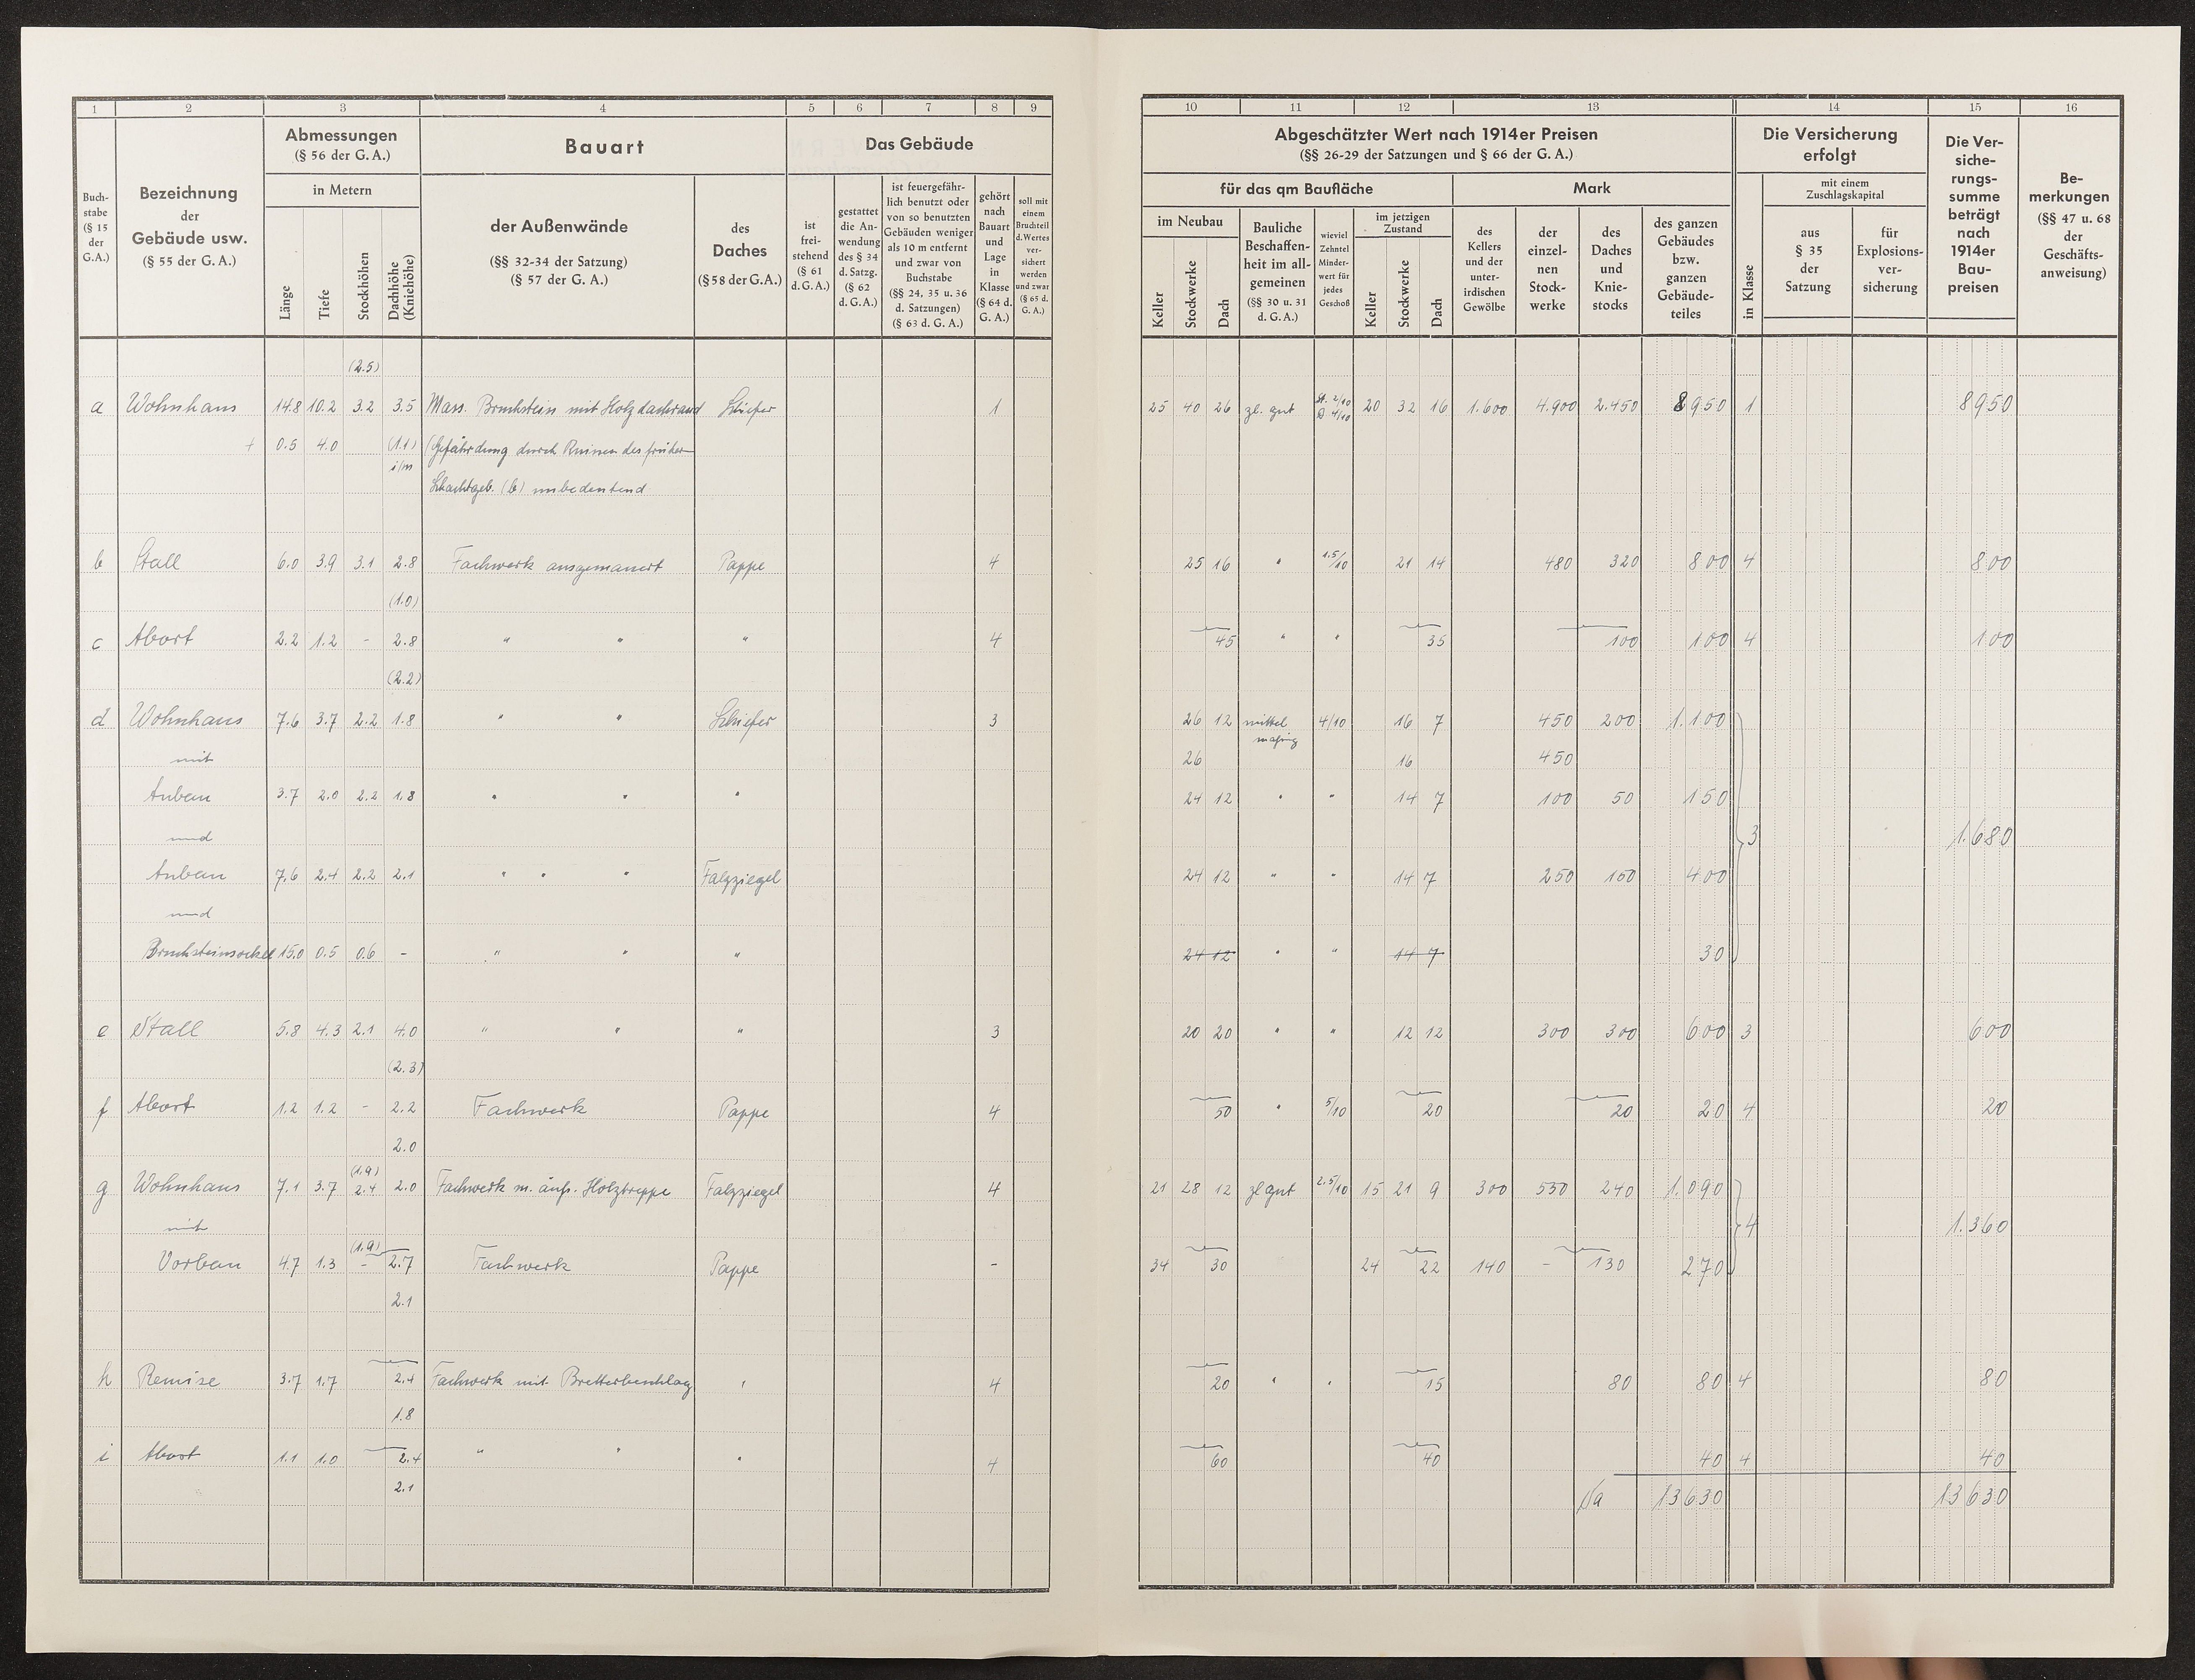 1 2 3 4 5 6 7 8 9 10 11 12 13 14 15 16
Buch-
stabe
(§ 15
der
G.A.)
Bezeichnung
der
Gebäude usw.
(§ 55 der G.A.)
Abmessungen
(§ 56 der G.A.)
in Metern
Länge
Tiefe
Stockhöhen
Dachhöhe
(Kniehöhe)
Bauart
der Außenwände
(§§ 32-34 der Satzung)
(§ 57 der G.A.)
des
Daches
(§ 58 der G.A.)
Das Gebäude
ist
frei-
stehend
(§ 61
d.G.A.)
gestattet
die An-
wendung
des § 34
d. Satzg.
(§ 62
d.G.A.)
ist feuergefähr-
lich benutzt oder
von so benutzten
Gebäuden weniger
als 10 m entfernt
und zwar von
Buchstabe
(§§ 24, 35 u. 36
d. Satzungen)
(§ 63 d. G. A.)
gehört
nach
Bauart
und
Lage
in
Klasse
(§ 64 d.
G. A.)
soll mit
einem
Bruchteil
d.Wertes
ver-
sichert
werden
und zwar
(§ 65 d.
G. A.)
Abgeschätzter Wert nach 1914er Preisen
(§§ 26-29 der Satzungen und § 66 der G. A.)
für das qm Baufläche
Mark
im Neubau
Keller
Stockwerke
Dach
Bauliche
Beschaffen-
heit im all-
gemeinen
(§§ 30 u. 31
d. G.A.)
wieviel
Zehntel
Minder-
wert für
jedes
Geschoß
im jetzigen
Zustand
Keller
Stockwerke
Dach
des
Kellers
und der
unter-
irdischen
Gewölbe
der
einzel-
nen
Stock-
werke
des
Daches
und
Knie-
stocks
des ganzen
Gebäudes
bzw.
ganzen
Gebäude-
teiles
Die Versicherung
erfolgt
in Klasse
mit einem
Zuschlagskapital
aus
§ 35
der
Satzung
für
Explosions-
ver-
sicherung
Die Ver-
siche-
rungs-
summe
beträgt
nach
1914er
Bau-
preisen
Be-
merkungen
(§§ 47 u. 68
der
Geschäfts-
anweisung)
(2.5)
a Wohnhaus 14.8 10.2 3.2 3.5 Mass. Bruchstein mit Holzdachrand Schiefer 1 25 40 26 zl. gut St. 2/10 D 4/10 20 32 16 1.600 4.900 2.450 8950 1 8950
+ 0.5 4.0 (1.1) (Gefährdung durch Ruinen des früher
i/m
Schachtgeb. (b) unbedeutend
b Stall 6.0 3.9 3.1 2.8 Fachwerk ausgemauert Pappe 4 25 16 " 1.5/10 21 14 480 320 800 4 800
(1.0)
c Abort 2.2 1.2 - 2.8 " " " 4 45 " " 35 100 100 4 100
(2.2)
d Wohnhaus 7.6 3.7 2.2 1.8 " " Schiefer 3 26 12 mittel 4/10 16 7 450 200 1.100
mässig
mit 26 16 450
Anbau 3.7 2.0 2.2 1.8 " " " 24 12 " " 14 7 100 50 150
und 3 1.680
Anbau 7.6 2.4 2.2 2.1 " " " Falzziegel 24 12 " " 14 7 250 150 400
und
Bruchsteinsockel 15.0 0.5 0.6 - " " " 24 12 " " 14 7 30
e Stall 5.8 4.3 2.1 4.0 " " " 3 20 20 " " 12 12 300 300 600 3 600
(2.3)
f Abort 1.2 1.2 - 2.2 Fachwerk Pappe 4 50 " 5/10 20 20 20 4 20
2.0
(1.9)
g Wohnhaus 7.1 3.7 2.4 2.0 Fachwerk m. äuß. Holztreppe Falzziegel 4 21 28 12 zl gut 2.5/10 15 21 9 300 550 240 1.090
mit 4 1.360
(1.9)
Vorbau 4.7 1.3 - 2.7 Fachwerk Pappe - 34 30 24 22 140 - 130 270
2.1
h Remise 3.7 1.7 2.4 Fachwerk mit Bretterbeschlag " 4 20 " " 15 80 80 4 80
1.8
i Abort 1.1 1.0 2.4 " " " 4 60 40 40 4 40
2.1
Sa 13630 13630